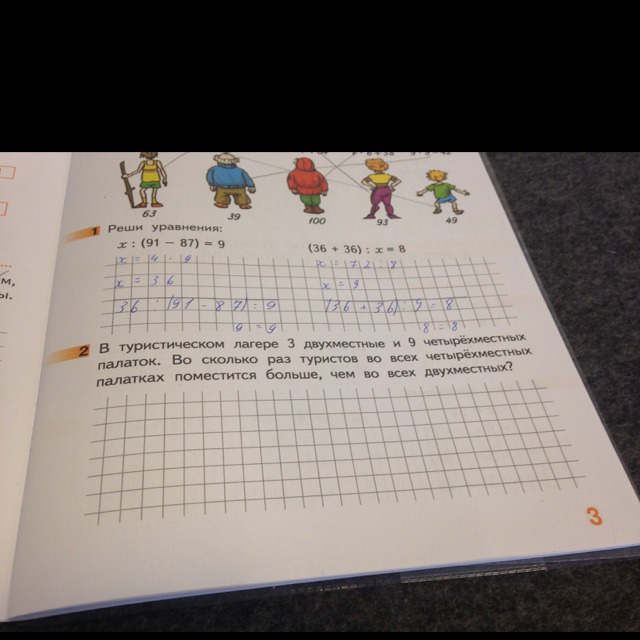 63 39 100 93 49
1 Реши уравнения:
x : (91 − 87) = 9 (36 + 36) : x = 8
x = 4 · 9 x = 72 : 8
x = 36 x = 9
36 : (91 - 87) = 9 (36 + 36) : 9 = 8
9 = 9 8 = 8
2 В туристическом лагере 3 двухместные и 9 четырёхместных
палаток. Во сколько раз туристов во всех четырёхместных
палатках поместится больше, чем во всех двухместных?
3